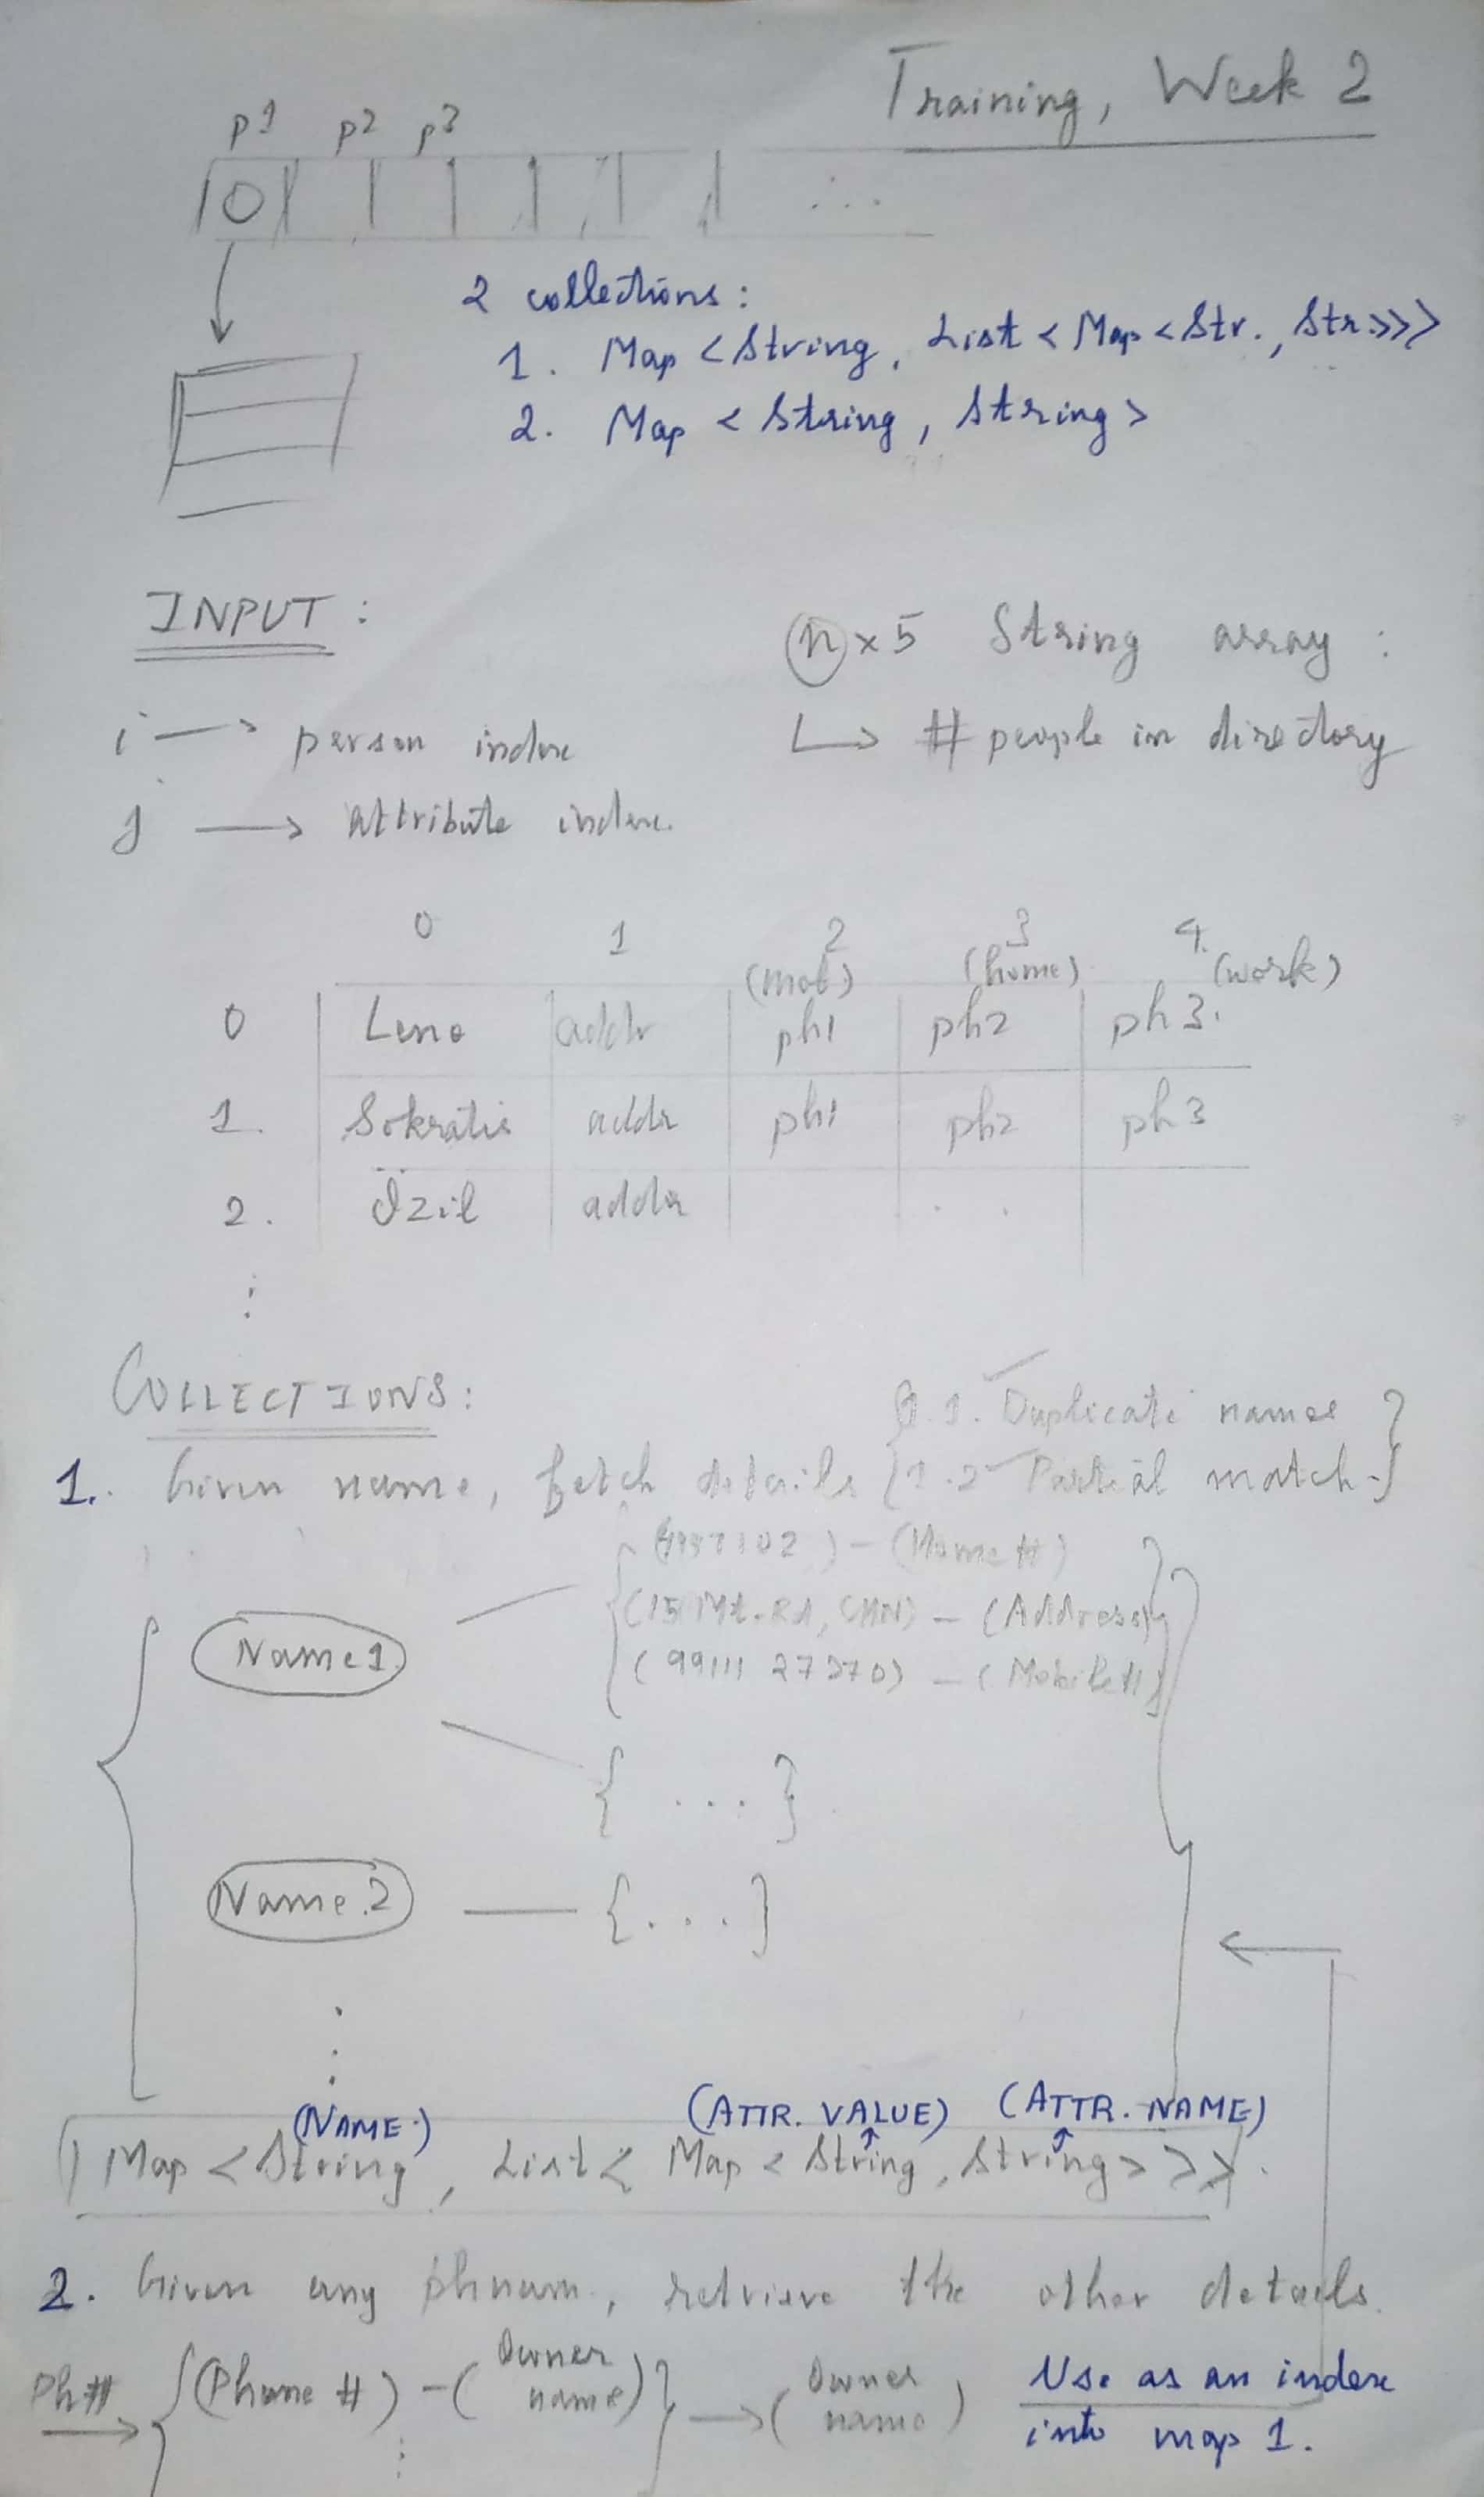 Training, Week 2
p1 p2 p3
0 ...
2 collections :
1. Map <String, List < Map <Str., Str>>>
2. Map < String, String>
INPUT :
n x 5 String array :
i → person index
↳ # people in directory
j → attribute index.
0 1 2 3 4
(mob) (home) (work)
0 Leno addr ph1 ph2 ph3.
1. Sokratis addr ph1 ph2 ph3
2. addr . .
COLLECTIONS :
1. Duplicate names
1. Given name, fetch details {1.2 Partial match }
) - (Home #)
(15 Mt. Rd, CHN) - (Address)
Name1
- (Mobile #)
{ ... }
Name.2 — { ... }
(NAME) (ATTR. VALUE) (ATTR. NAME)
Map <String, List < Map < String, String> >>.
2. Given any phnum., retrieve the other details.
Ph# → {(Phone #) - (Owner name)} → (Owner name) Use as an index
into map 1.